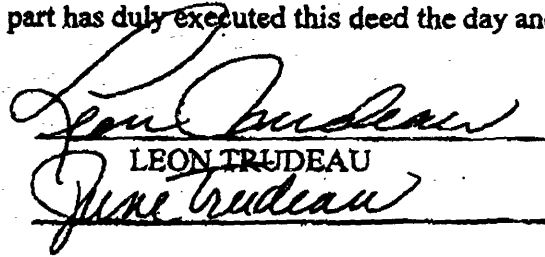 part has duly executed this deed the day an
Leon Trudeau
LEON TRUDEAU
June Trudeau